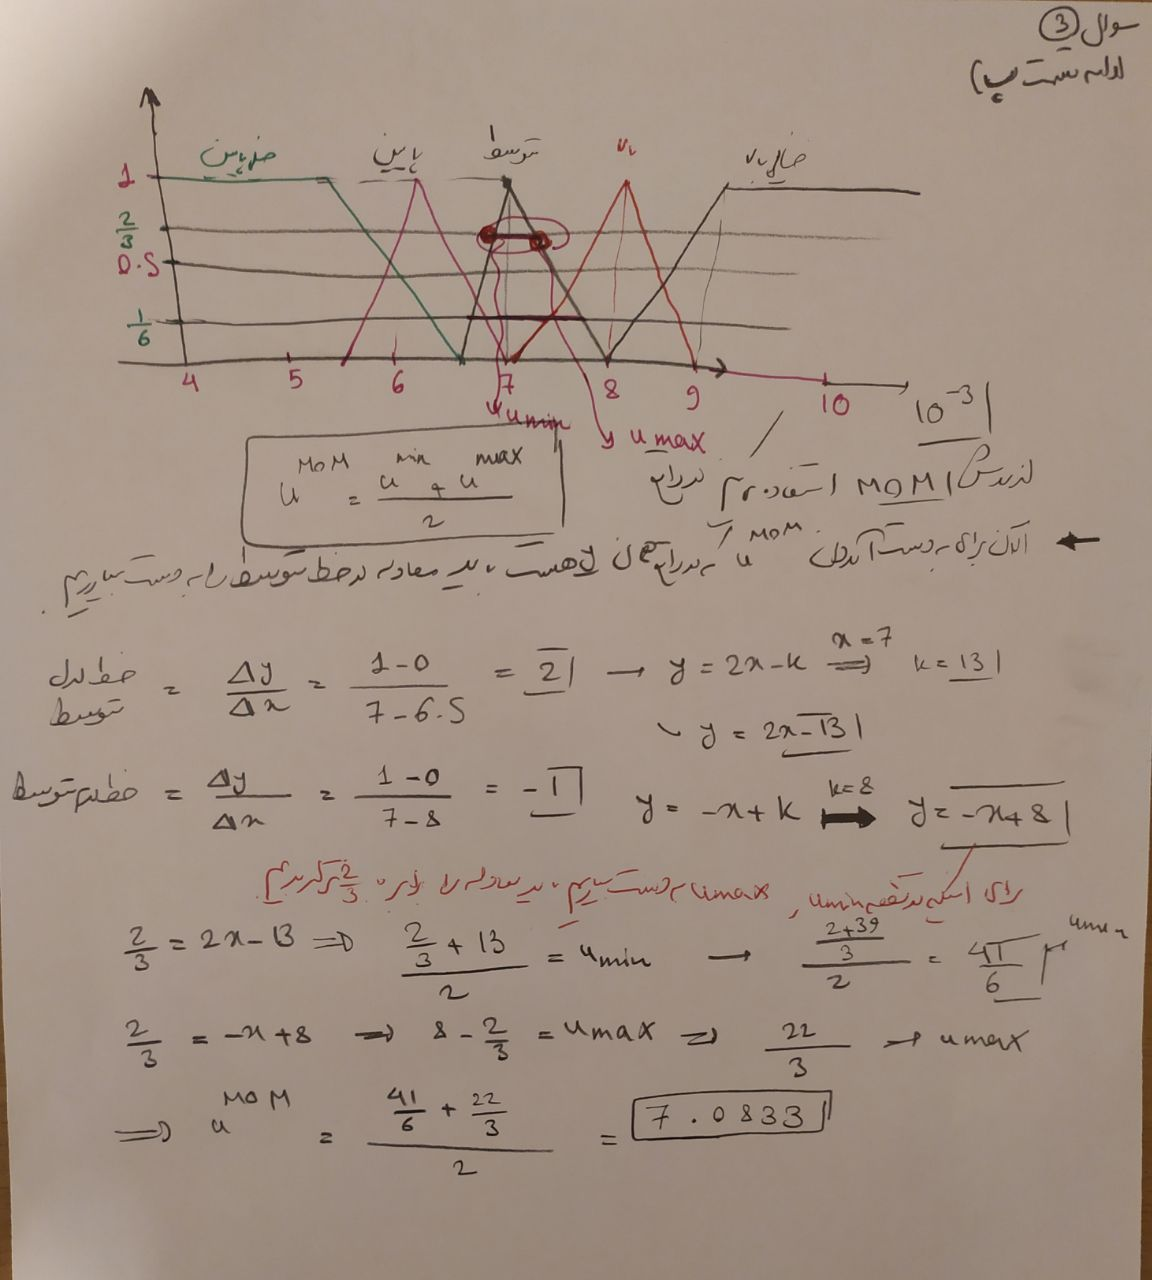 سوال 3
ادامه قسمت ب)
خیلی پایین پایین متوسط بالا خیلی بالا
1
2/3
0.5
1/6
4 5 6 7 8 9 10 10^-3
u min u max
u^MOM = (u^min + u^max) / 2
از روش MOM استفاده
الان برای به دست آوردن u^MOM که در واقع همان هست باید معادله دو خط متوسط را به دست بیاریم.
خط اول متوسط = Δy/Δx = (1-0)/(7-6.5) = 2 → y = 2x-k x=7 ⇒ k = 13
y = 2x-13
خط دوم متوسط = Δy/Δx = (1-0)/(7-8) = -1 y = -x+k k=8 → y = -x+8
برای اینکه دو نقطه umin و umax به دست بیاریم باید معادله را برابر 2/3 قرار بدیم
2/3 = 2x-13 ⇒ (2/3 + 13)/2 = umin → ((2+39)/3)/2 = 41/6 umin
2/3 = -x+8 ⇒ 8 - 2/3 = umax ⇒ 22/3 → umax
⇒ u^MOM = (41/6 + 22/3)/2 = 7.0833